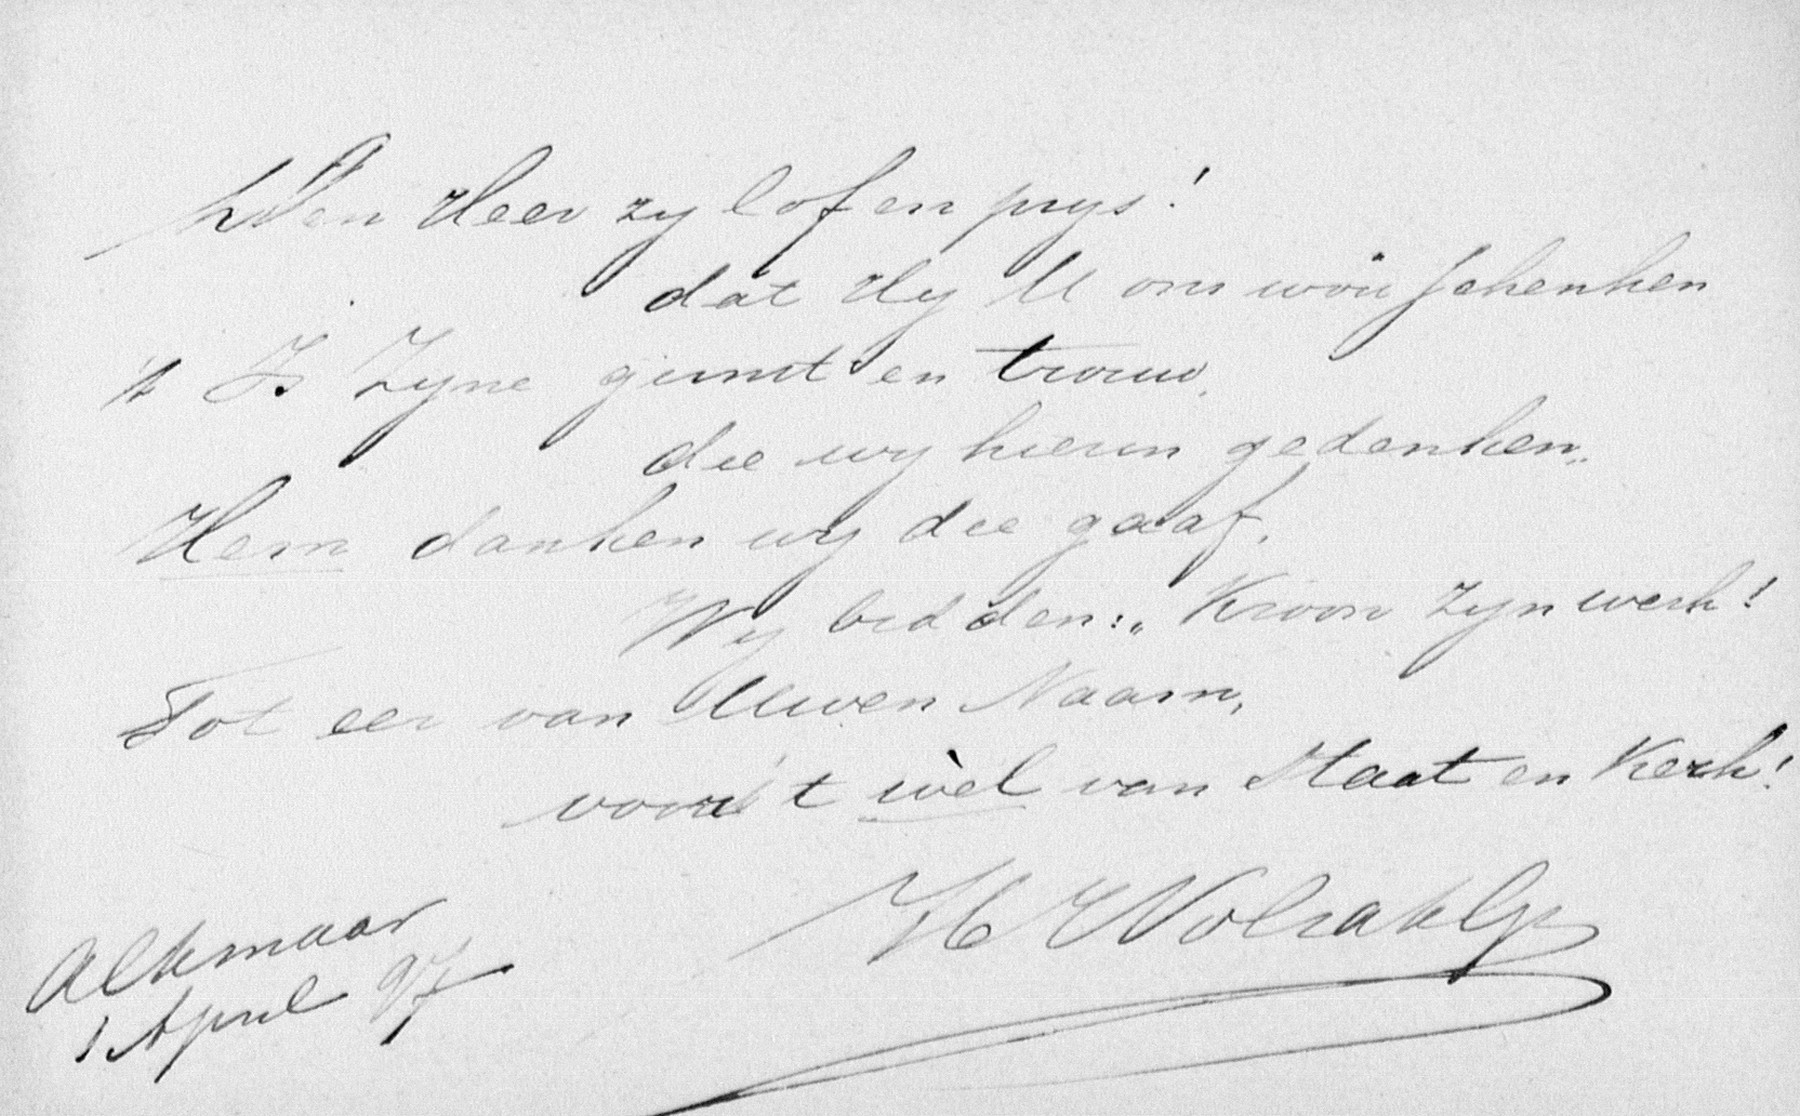 Den Heer zy lof en prys!
dat Hy U ons woû schenken
't Is Zyne gunst en trouw,
die wy hierin gedenken.
Hem danken wy die gaaf,
Wy bidden: „Kroon Zyn werk!
Tot eer van Uwen Naam,
voor 't wèl van Staat en Kerk!
H
Alkmaar
1 April 97